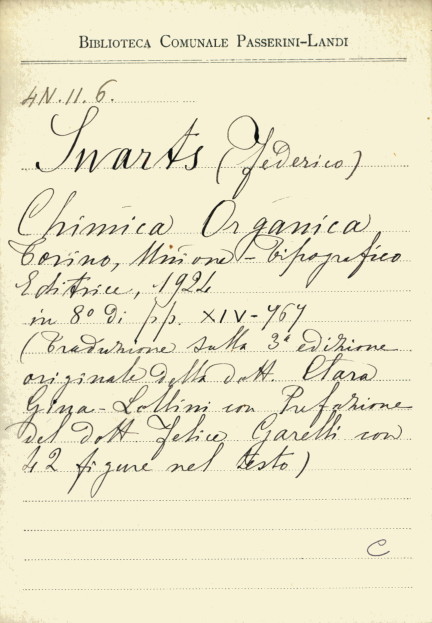 BIBLIOTECA COMUNALE PASSERINI-LANDI
4N.II.6.
Swarts (Federico)
Chimica Organica
Torino, Unione-Tipografico
Editrice, 1924
in 8º di pp. XIV-767
(Traduzione sulla 3ª edizione
originale della dott. Clara
Gina-Lollini con Prefazione
del dott Felice Garelli con
42 figure nel testo)
C